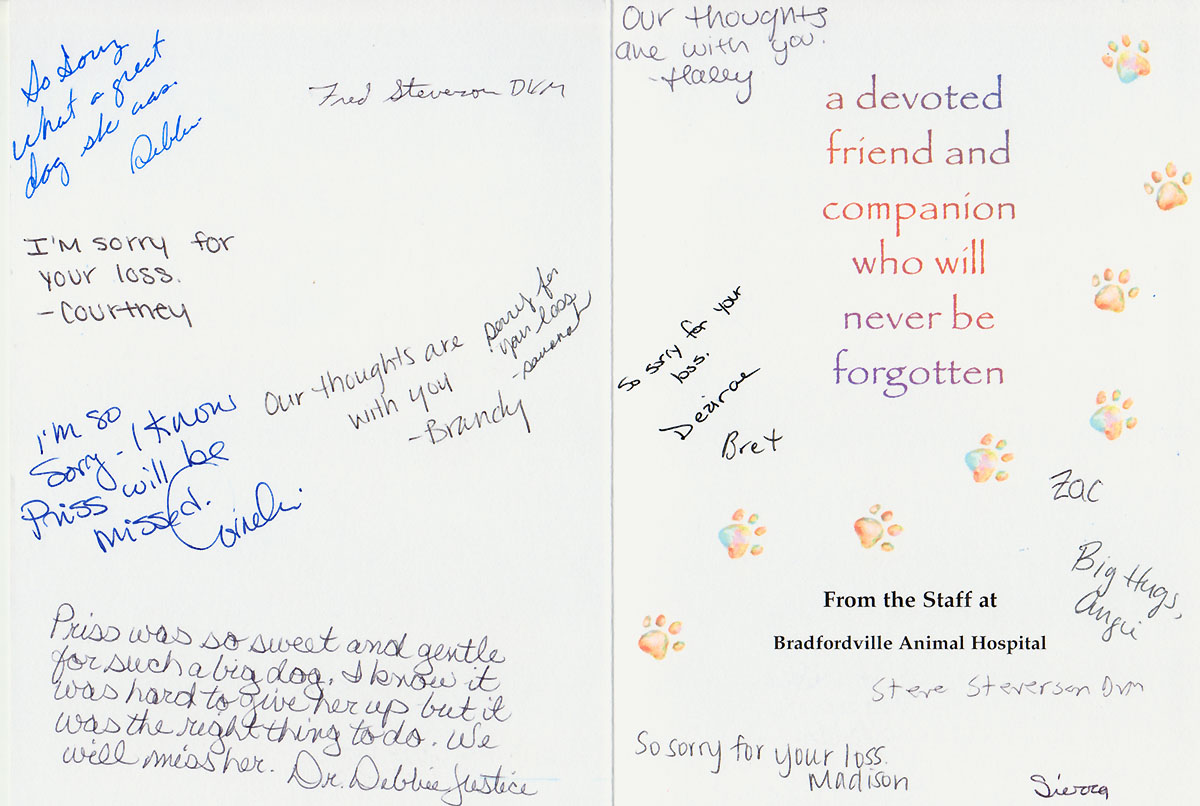 So Sorry
what a great
dog she was.
Debbie
Fred Steverson DVM
I'm sorry for
your loss.
-Courtney
Our thoughts are
with you
-Brandy
sorry for
your loss
-savanah
I'm so
Sorry - I know
Priss will be
missed.
Priss was so sweet and gentle
for such a big dog. I know it
was hard to give her up but it
was the right thing to do. We
will miss her. Dr. Debbie Justice
Our thoughts
are with you.
-Haley
a devoted
friend and
companion
who will
never be
forgotten
So sorry for your
loss.
Dezirae
Bret
Zac
Big Hugs,
Angie
From the Staff at
Bradfordville Animal Hospital
Steve Steverson Dvm
So sorry for your loss.
Madison
Sierra